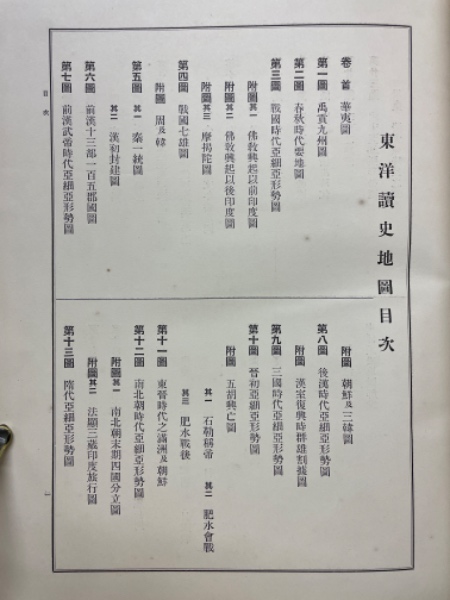 東洋讀史地圖目次
卷首 華夷圖
第一圖 禹貢九州圖
第二圖 春秋時代要地圖
第三圖 戰國時代亞細亞形勢圖
附圖其一 佛敎興起以前印度圖
附圖其二 佛敎興起以後印度圖
附圖其三 摩揭陀圖
第四圖 戰國七雄圖
附圖 周及韓
第五圖 其一 秦一統圖
其二 漢初封建圖
第六圖 前漢十三部一百五郡國圖
第七圖 前漢武帝時代亞細亞形勢圖
附圖 朝鮮及三韓圖
第八圖 後漢時代亞細亞形勢圖
附圖 漢室復興時群雄割據圖
第九圖 三國時代亞細亞形勢圖
第十圖 晉初亞細亞形勢圖
附圖 五胡興亡圖
其一 石勒稱帝 其二 肥水會戰
其三 肥水戰後
第十一圖 東晉時代之滿洲及朝鮮
第十二圖 南北朝時代亞細亞形勢圖
附圖其一 南北朝末期四國分立圖
附圖其二 法顯三藏印度旅行圖
第十三圖 隋代亞細亞形勢圖
目次